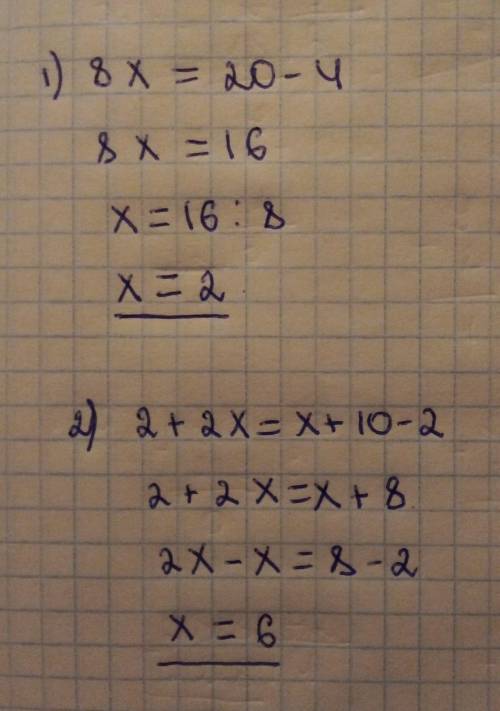 1) 8x = 20 - 4
8x = 16
x = 16 : 8
x = 2
2) 2 + 2x = x + 10 - 2
2 + 2x = x + 8
2x - x = 8 - 2
x = 6